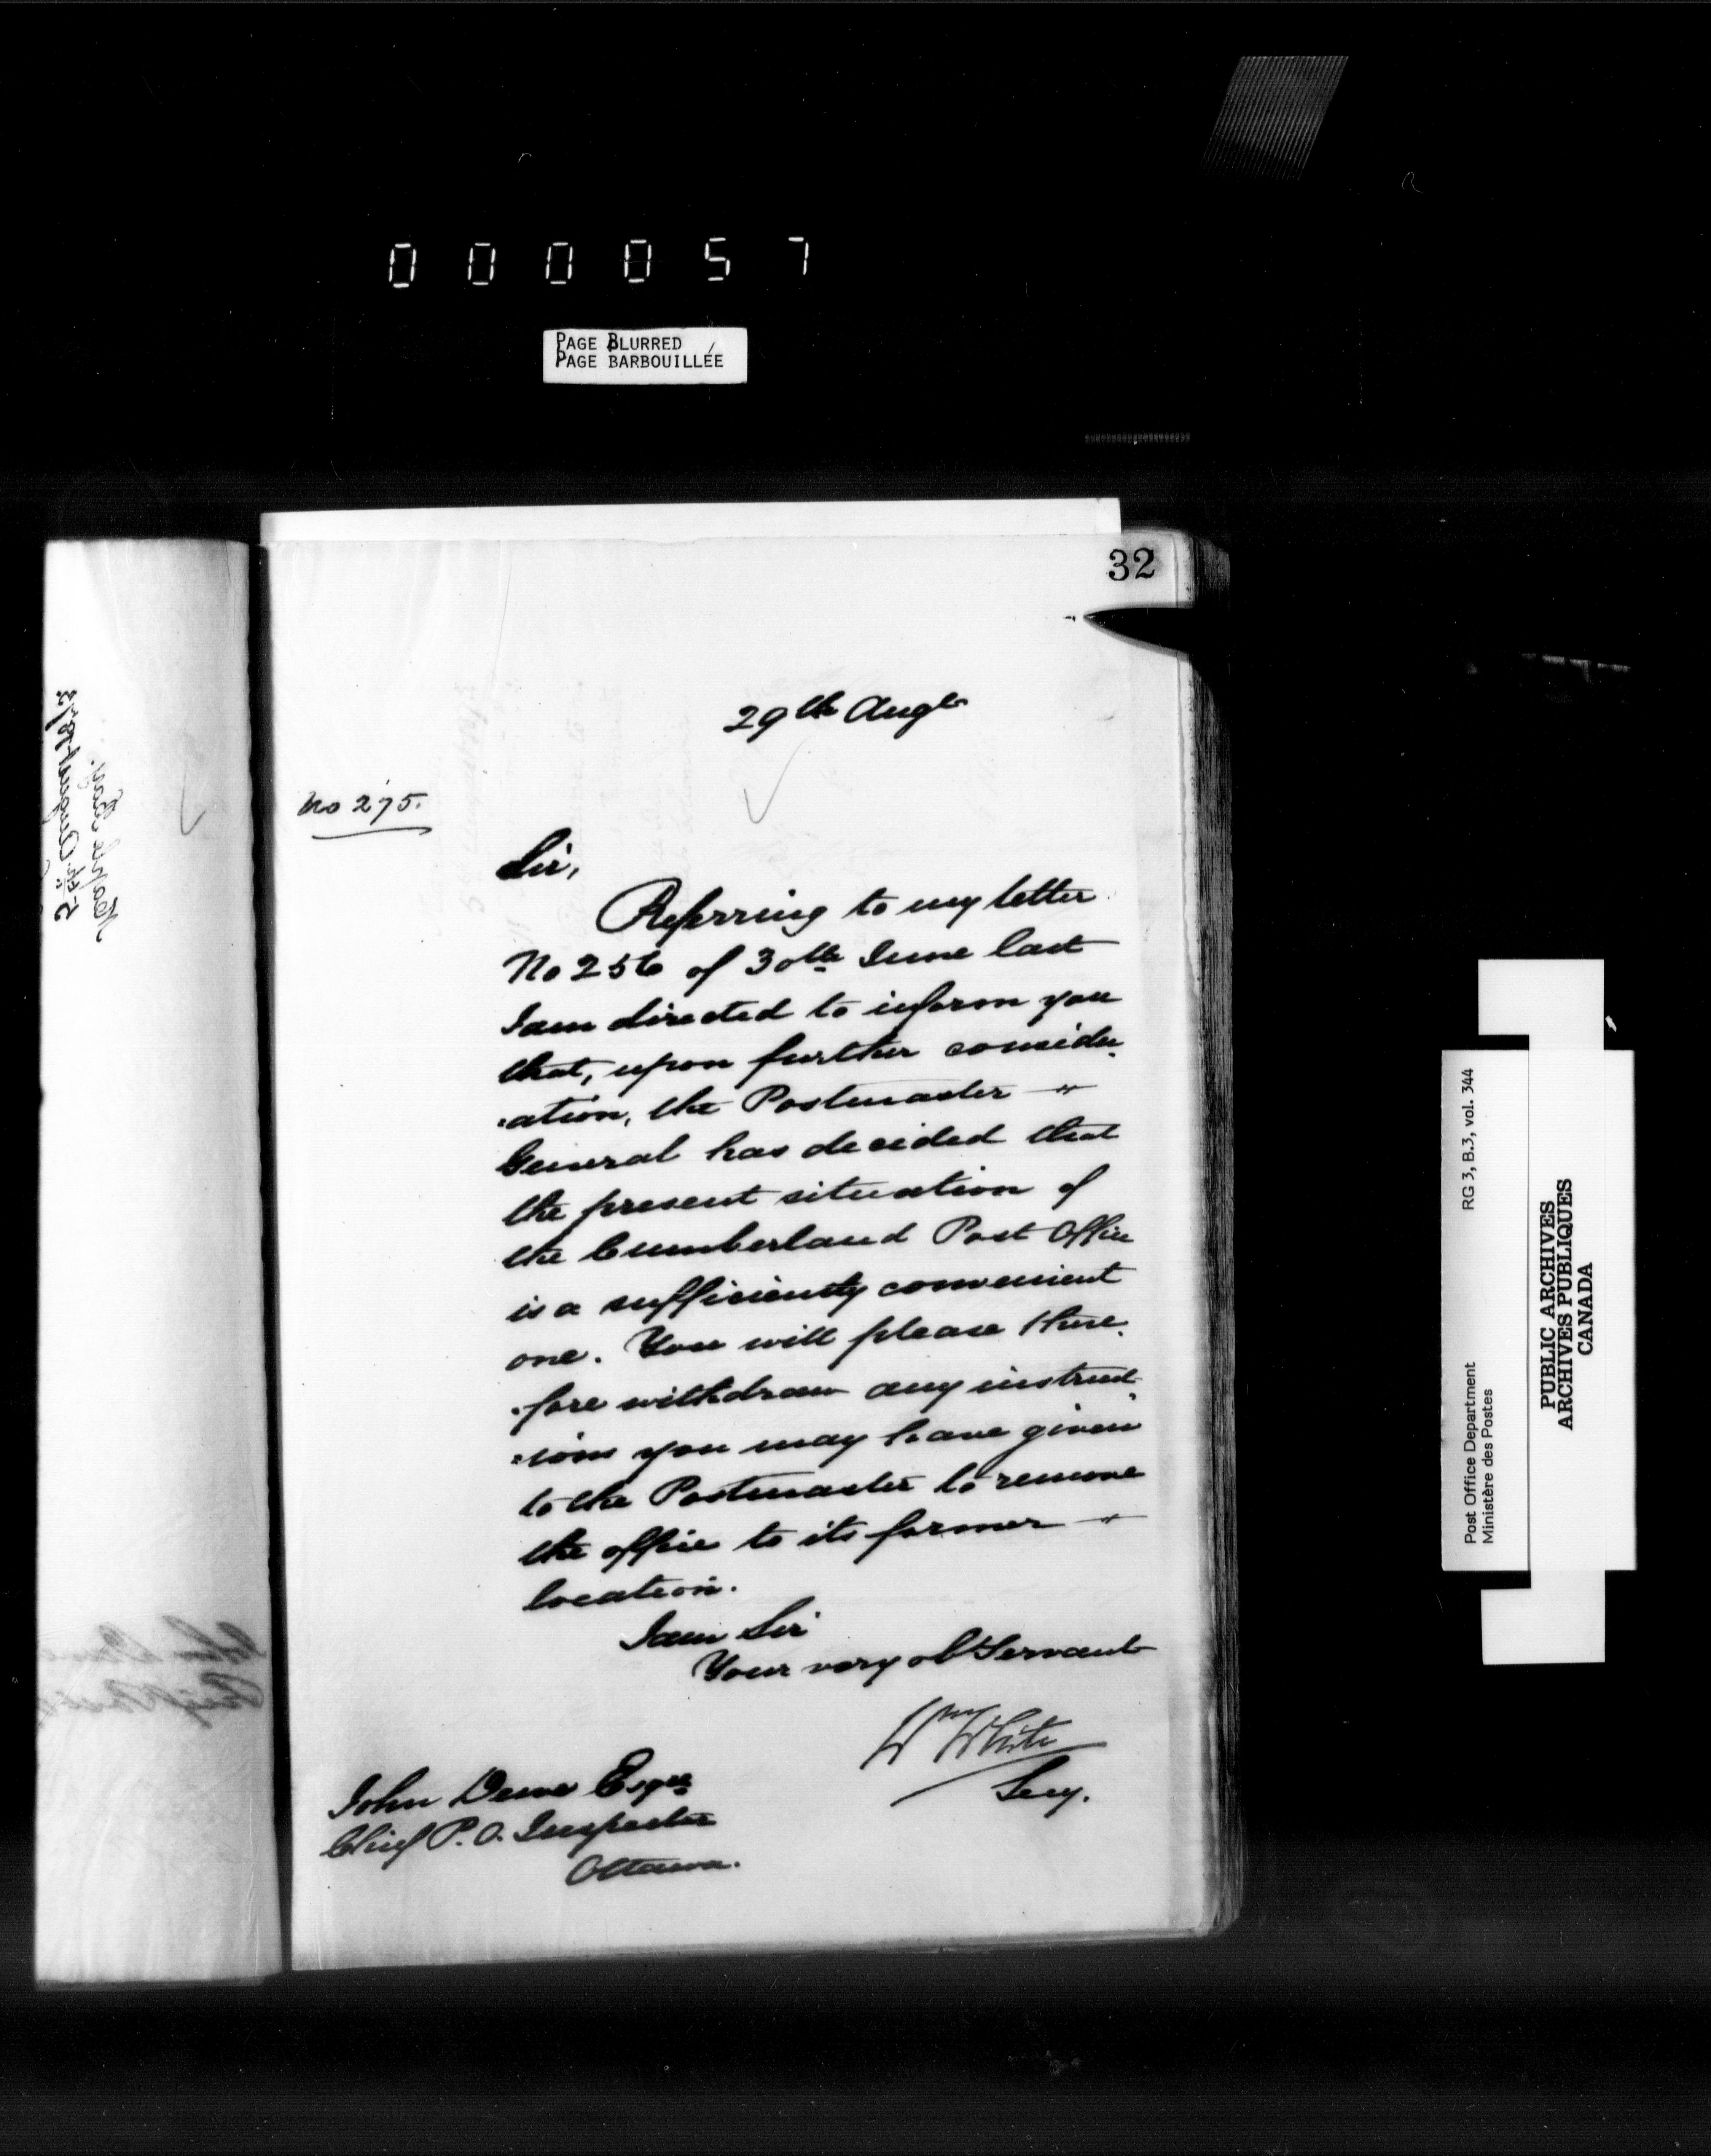 000057
PAGE BLURRED
PAGE BARBOUILLÉE
32
29th Augt
No 275.
Sir,
Referring to my letter
No 256 of 30th June last
I am directed to inform you
that, upon further consider-
-ation, the Postmaster
General has decided that
the present situation of
the Cumberland Post Office
is a sufficiently convenient
one. You will please there-
-fore withdraw any instruct-
-ions you may have given
to the Postmaster to remove
the office to its former
location.
I am Sir
Your very obt Servant
Wm White
Secy.
John Dewe Esqre
Chief P. O. Inspector
Ottawa.
5th August 1873
RG 3, B.3, vol. 344
Post Office Department
Ministère des Postes
PUBLIC ARCHIVES
ARCHIVES PUBLIQUES
CANADA